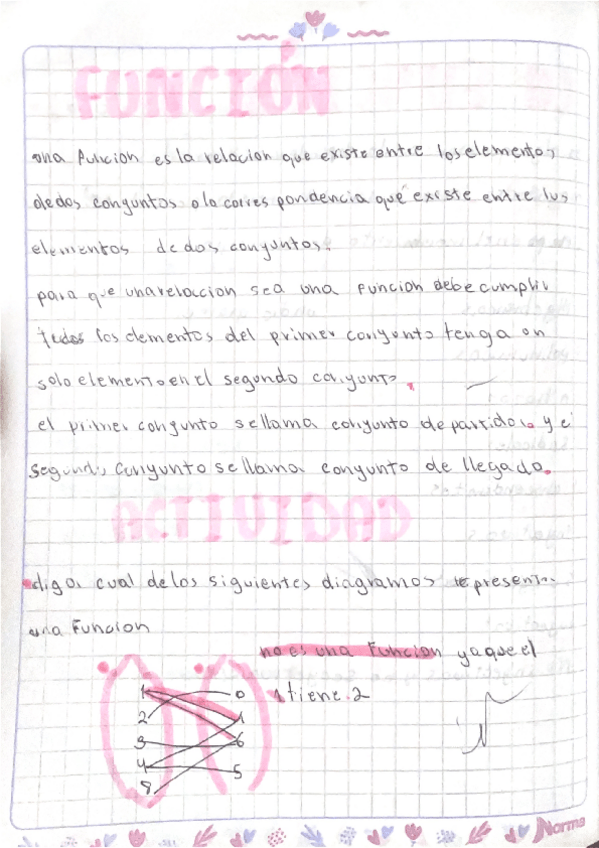 FUNCIÓN
una Funcion es la relacion que existe entre los elementos
de dos conguntos o la corres pondencia que existe entre los
elementos de dos conguntos.
para que una relaccion sea una Funcion debe cumplir
todos los elementos del primer congunto tenga un
solo elemento en el segundo congunto.
el primer congunto se llama congunto de partido. y el
segundo congunto se llama congunto de llegado.
ACTIVIDAD
diga cual de los siguientes diagramas representa
una Funcion
no es una Funcion ya que el
1 tiene 2
1 0
2 1
3 6
4 5
8
Norma